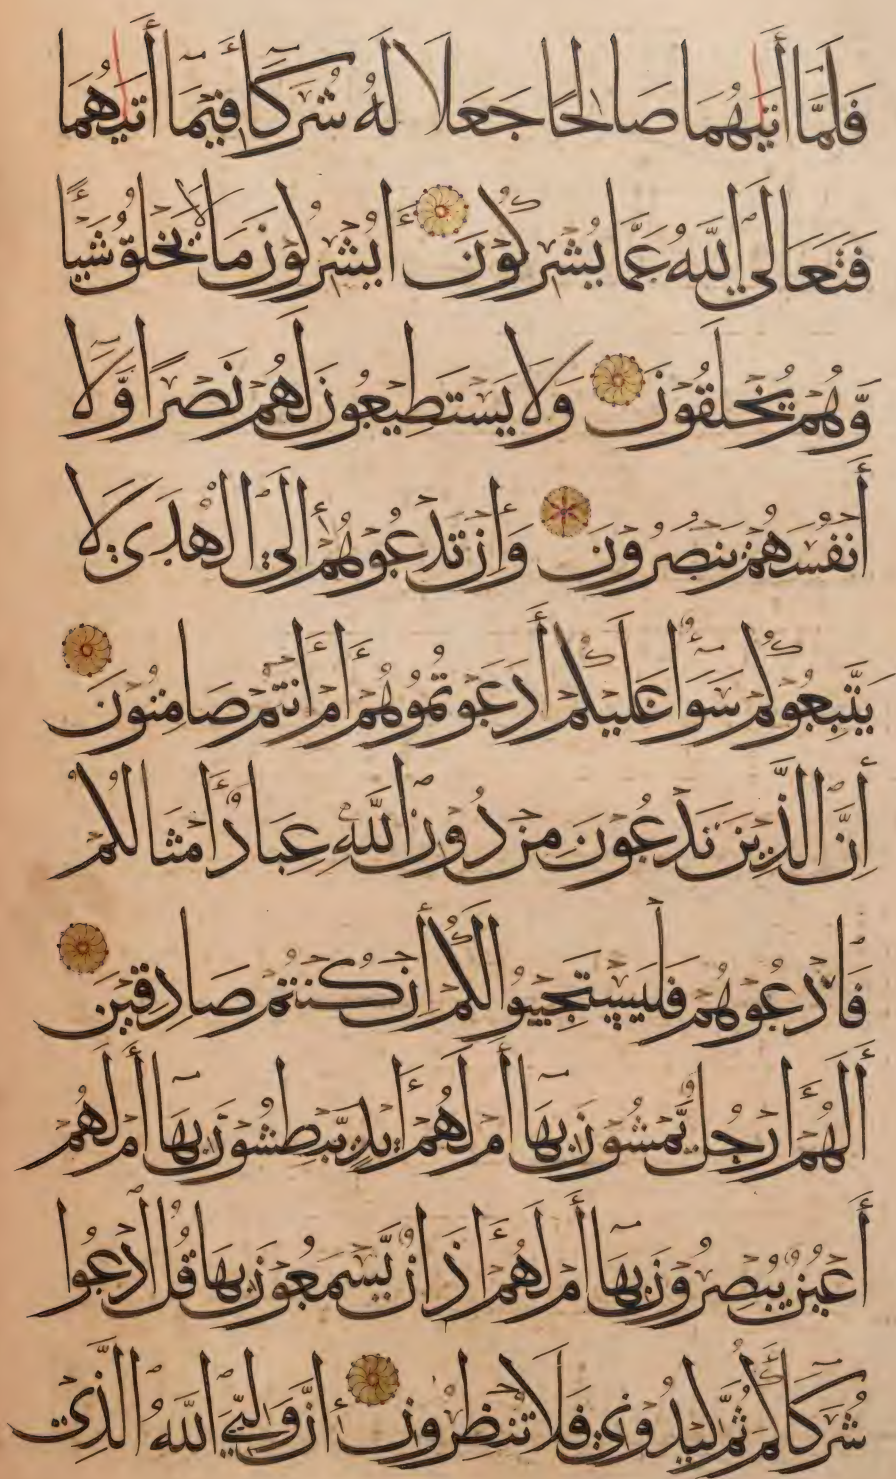 فَلَمَّا أَتَىٰهُمَا صَالِحًا جَعَلَا لَهُ شُرَكَآءَ فِيمَآ أَتَىٰهُمَا
فَتَعَالَى اللَّهُ عَمَّا يُشْرِكُونَ أَيُشْرِكُونَ مَا لَا يَخْلُقُ شَيْئًا
وَّهُمْ يُخْلَقُونَ وَلَا يَسْتَطِيعُونَ لَهُمْ نَصْرًا وَّلَا
أَنْفُسَهُمْ يَنْصُرُونَ وَإِنْ تَدْعُوهُمْ إِلَى الْهُدَى لَا
يَتَّبِعُوكُمْ سَوَآءٌ عَلَيْكُمْ أَدَعَوْتُمُوهُمْ أَمْ أَنْتُمْ صَامِتُونَ
إِنَّ الَّذِينَ تَدْعُونَ مِنْ دُونِ اللَّهِ عِبَادٌ أَمْثَالُكُمْ
فَادْعُوهُمْ فَلْيَسْتَجِيبُوا لَكُمْ إِنْ كُنْتُمْ صَادِقِينَ
أَلَهُمْ أَرْجُلٌ يَّمْشُونَ بِهَآ أَمْ لَهُمْ أَيْدٍ يَّبْطِشُونَ بِهَآ أَمْ لَهُمْ
أَعْيُنٌ يُبْصِرُونَ بِهَآ أَمْ لَهُمْ أٰذَانٌ يَّسْمَعُونَ بِهَا قُلِ ادْعُوا
شُرَكَآءَكُمْ ثُمَّ كِيدُونِي فَلَا تُنْظِرُونِ إِنَّ وَلِيِّيَ اللَّهُ الَّذِي